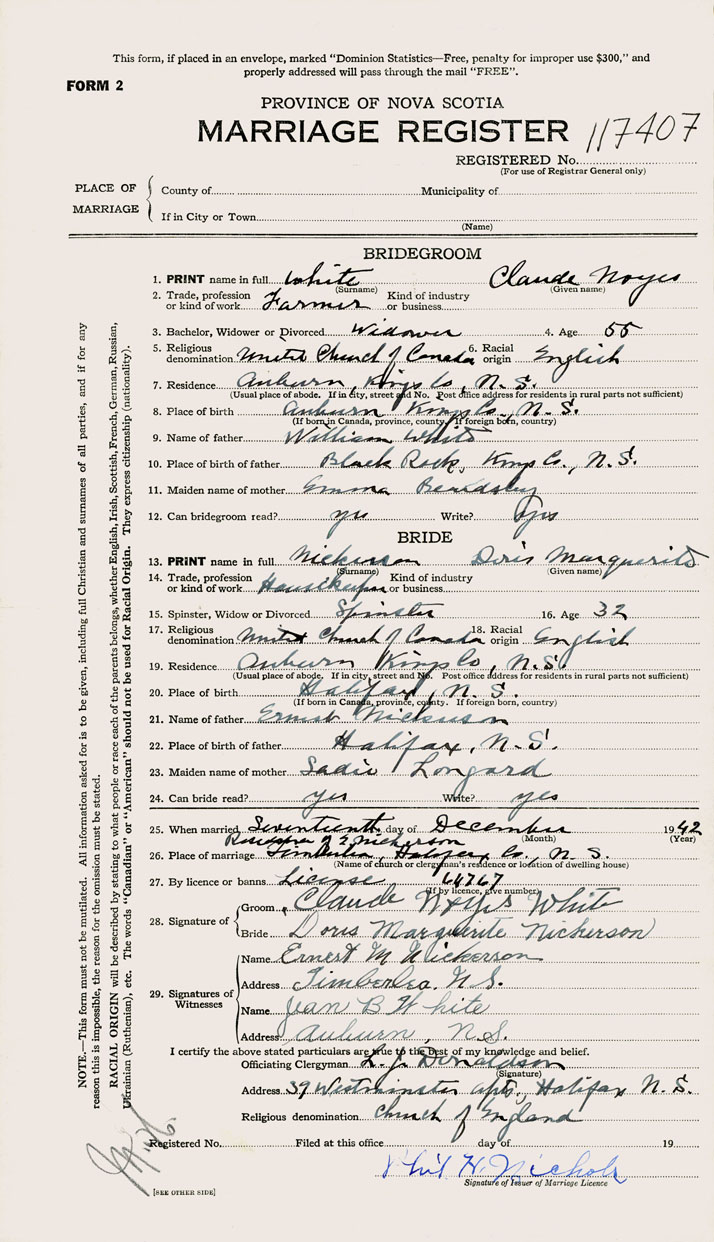 This form, if placed in an envelope, marked "Dominion Statistics—Free, penalty for improper use $300," and
properly addressed will pass through the mail "FREE".
FORM 2
PROVINCE OF NOVA SCOTIA
MARRIAGE REGISTER 117407
REGISTERED No.
(For use of Registrar General only)
PLACE OF MARRIAGE
County of Municipality of
If in City or Town
(Name)
BRIDEGROOM
1. PRINT name in full White Claude Noyes
(Surname) (Given name)
2. Trade, profession or kind of work Farmer Kind of industry or business
3. Bachelor, Widower or Divorced Widower 4. Age 55
5. Religious denomination United Church of Canada 6. Racial origin English
7. Residence Auburn, Kings Co, N.S.
(Usual place of abode. If in city, street and No. Post office address for residents in rural parts not sufficient)
8. Place of birth Auburn Kings Co., N.S.
(If born in Canada, province, county. If foreign born, country)
9. Name of father William White
10. Place of birth of father Black Rock, Kings Co., N.S.
11. Maiden name of mother Emma Beardsley
12. Can bridegroom read? yes Write? yes
BRIDE
13. PRINT name in full Nickerson Doris Marguerite
(Surname) (Given name)
14. Trade, profession or kind of work Housekeeper Kind of industry or business
15. Spinster, Widow or Divorced Spinster 16. Age 32
17. Religious denomination United Church of Canada 18. Racial origin English
19. Residence Auburn Kings Co, N.S.
(Usual place of abode. If in city, street and No. Post office address for residents in rural parts not sufficient)
20. Place of birth Halifax, N.S.
(If born in Canada, province, county. If foreign born, country)
21. Name of father Ernest Nickerson
22. Place of birth of father Halifax, N.S.
23. Maiden name of mother Sadie Longard
24. Can bride read? yes Write? yes
25. When married Seventeenth day of December 1942
(Month) (Year)
Residence of E Nickerson
26. Place of marriage Timberlea, Halifax Co., N.S.
(Name of church or clergyman's residence or location of dwelling house)
27. By licence or banns License 64767
(If by licence, give number)
28. Signature of
Groom Claude Noyes White
Bride Doris Marguerite Nickerson
29. Signatures of Witnesses
Name Ernest M Nickerson
Address Timberlea N.S.
Name Jean B White
Address Auburn, N.S.
I certify the above stated particulars are true to the best of my knowledge and belief.
Officiating Clergyman L. J. Donaldson
(Signature)
Address 39 Westminster apts, Halifax N.S.
Religious denomination Church of England
Registered No. Filed at this office day of 19
Phil H. Nichols
Signature of Issuer of Marriage Licence
[SEE OTHER SIDE]
NOTE.—This form must not be mutilated. All information asked for is to be given, including full Christian and surnames of all parties, and if for any
reason this is impossible, the reason for the omission must be stated.
RACIAL ORIGIN will be described by stating to what people or race each of the parents belongs, whether English, Irish, Scottish, French, German, Russian,
Ukrainian (Ruthenian), etc. The words "Canadian" or "American" should not be used for Racial Origin. They express citizenship (nationality).